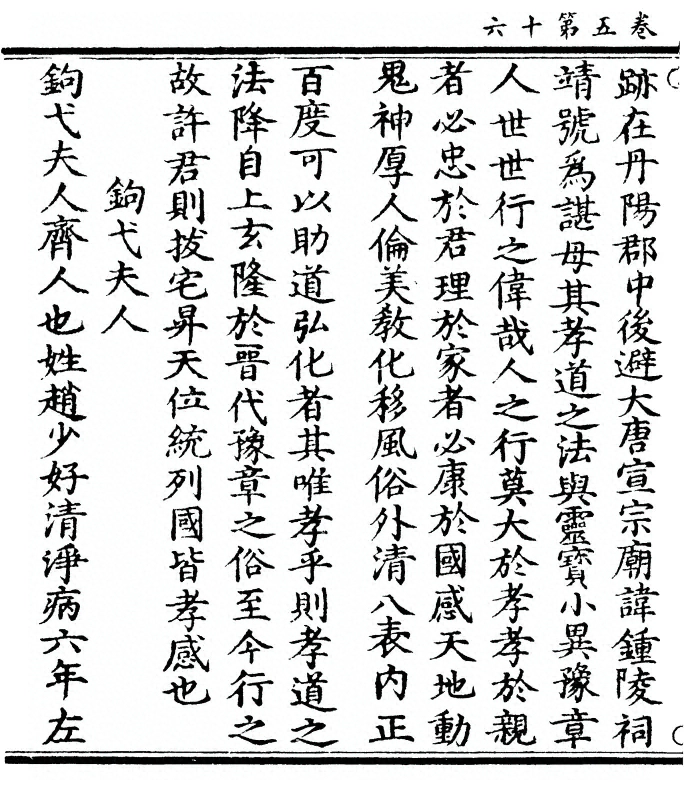 卷五第十六
跡在丹陽郡中後避大唐宣宗廟諱鍾陵祠
靖號為諶母其孝道之法與靈寶小異豫章
人世世行之偉哉人之行莫大於孝孝於親
者必忠於君理於家者必康於國感天地動
鬼神厚人倫美教化移風俗外清八表内正
百度可以助道弘化者其唯孝乎則孝道之
法降自上玄隆於晉代豫章之俗至今行之
故許君則拔宅昇天位統列國皆孝感也
鉤弋夫人
鉤弋夫人齊人也姓趙少好清淨病六年左